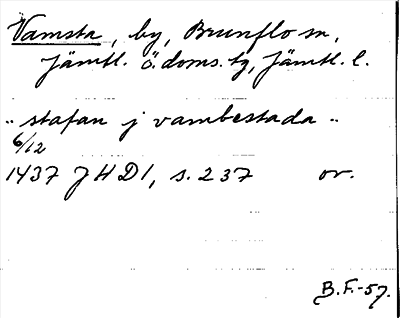 Vamsta, by, Brunflo sn,
Jämtl. ö. doms. tg, Jämtl. l.
"stafan j vambestada"
6/12
1437 JHD1, s. 237 or.
B.F.-57.